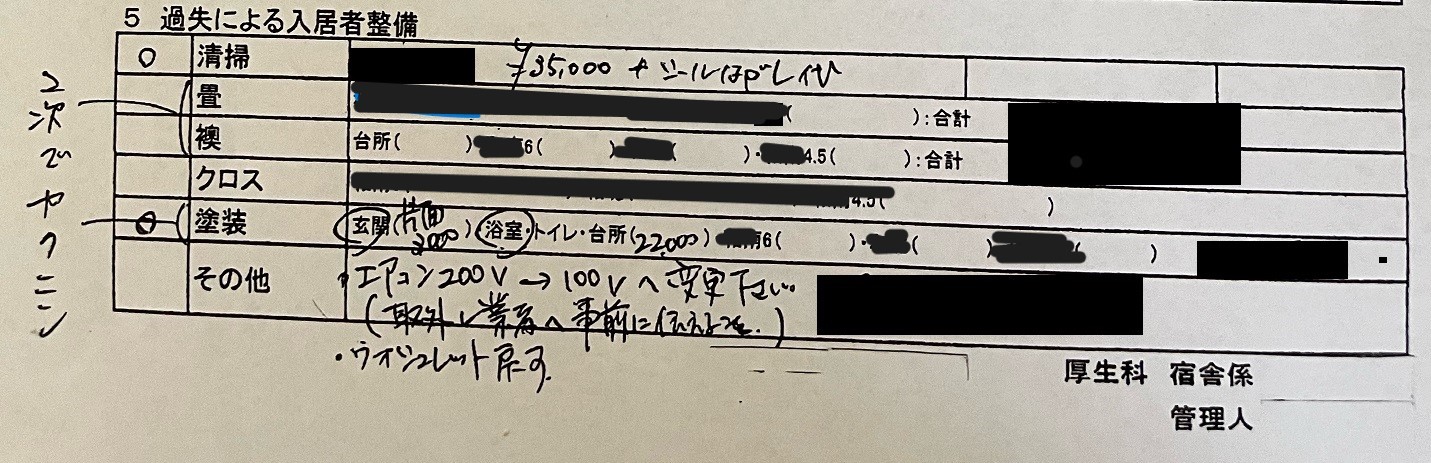 5 過失による入居者整備
○ 清掃 ¥35,000 + シールはがし代
畳 ( ):合計
襖 台所( ) 6( ) ( )・ 4.5( ):合計
クロス 4.5( )
○ 塗装 玄関(片面2000) 浴室・トイレ・台所(22,000) 6( )・ ( ) ( )
その他 ・エアコン200V→100Vへ変更下さい
(取外し業者へ事前に伝える)
・ウオシュレット戻す.
2次でカクニン
厚生科 宿舎係
管理人